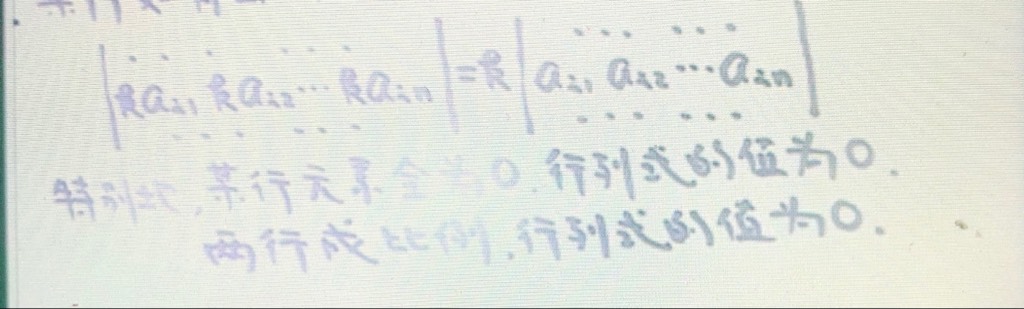 | ··· ··· |
| ka_{i1} ka_{i2} ··· ka_{in} | = k | a_{i1} a_{i2} ··· a_{in} |
| ··· ··· |
特别地,某行元素全为0,行列式的值为0.
两行成比例,行列式的值为0.